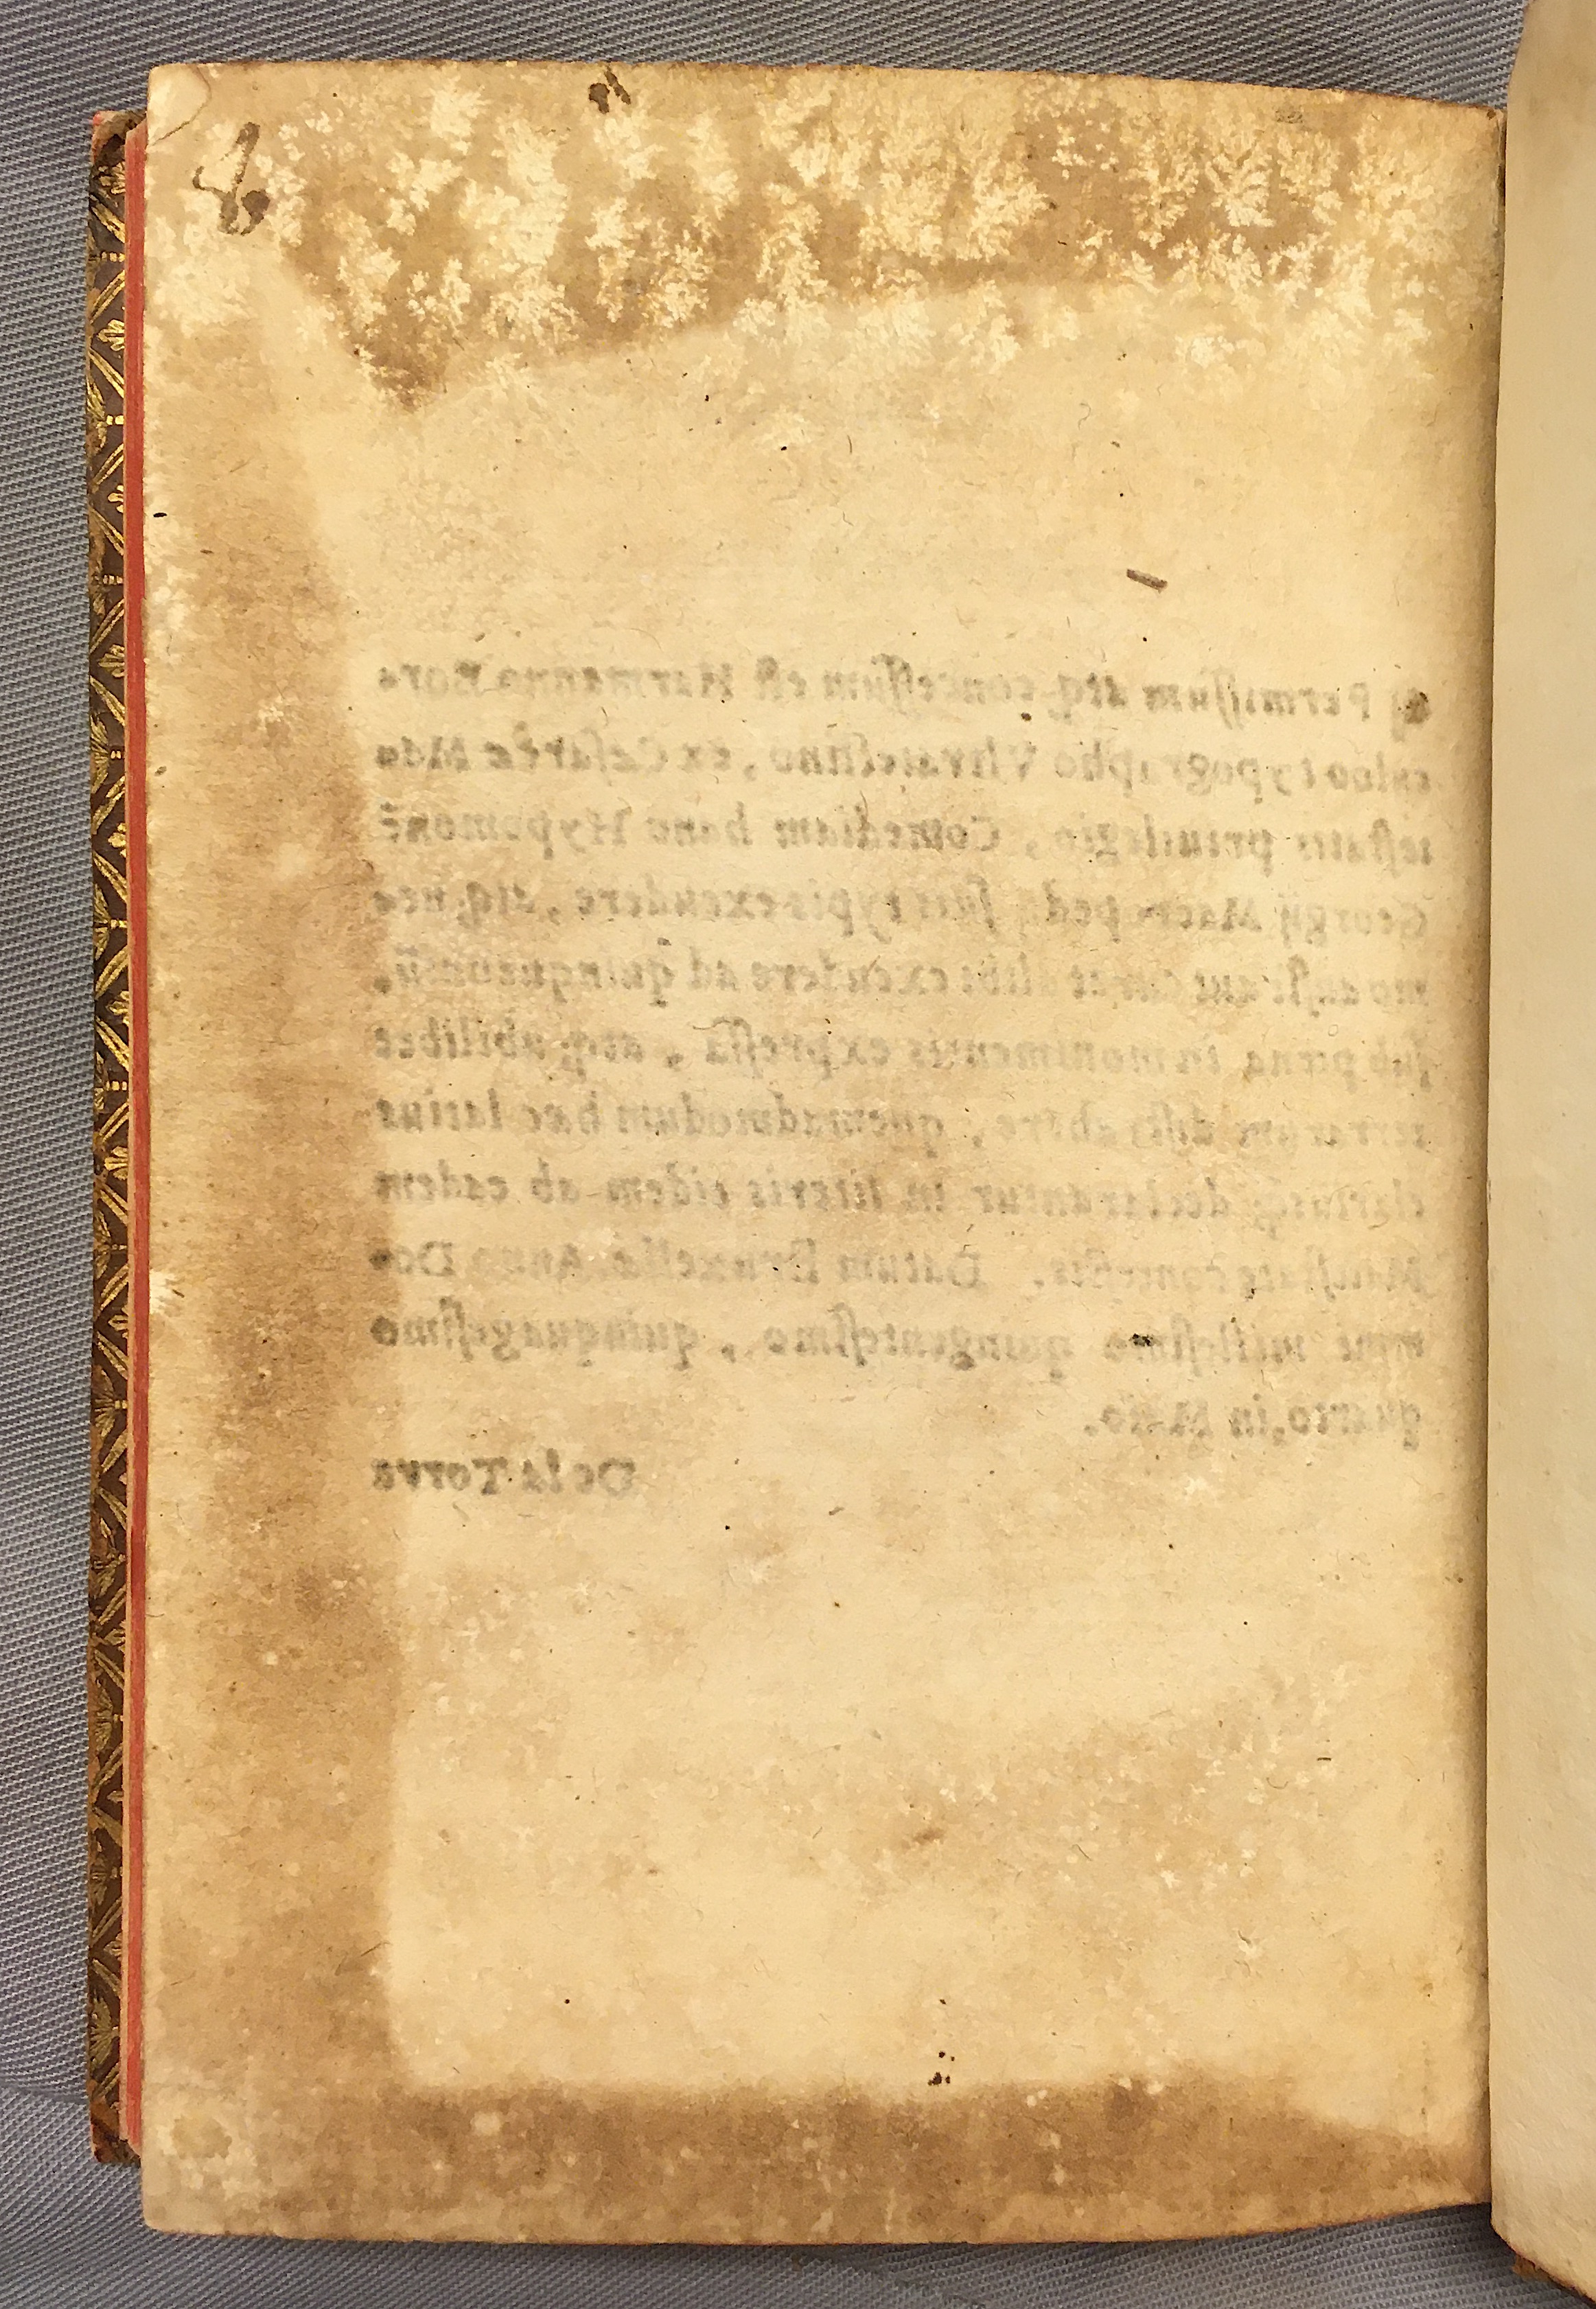 Permissum atq; concessum est Hermanno Bor-
culoo typographo Vltraiectino, ex Cæsareæ Ma-
iestatis priuilegio, Comediam hanc Hypomonẽ
Georgij Macropedij suis typis excudere, atq; ne-
mo ausit aut alibi excudere ad quinquenniũ,
sub pœna in monimentis expressa, atq; abilibet
terrarum distrahere, quemadmodum hæc latius
clariusq; declarantur in literis eidem ab eadem
Maiestate concessis. Datum Bruxellæ Anno Do-
mini millesimo quingentesimo, quinquagesimo
quarto, in Maio.
De la Torre